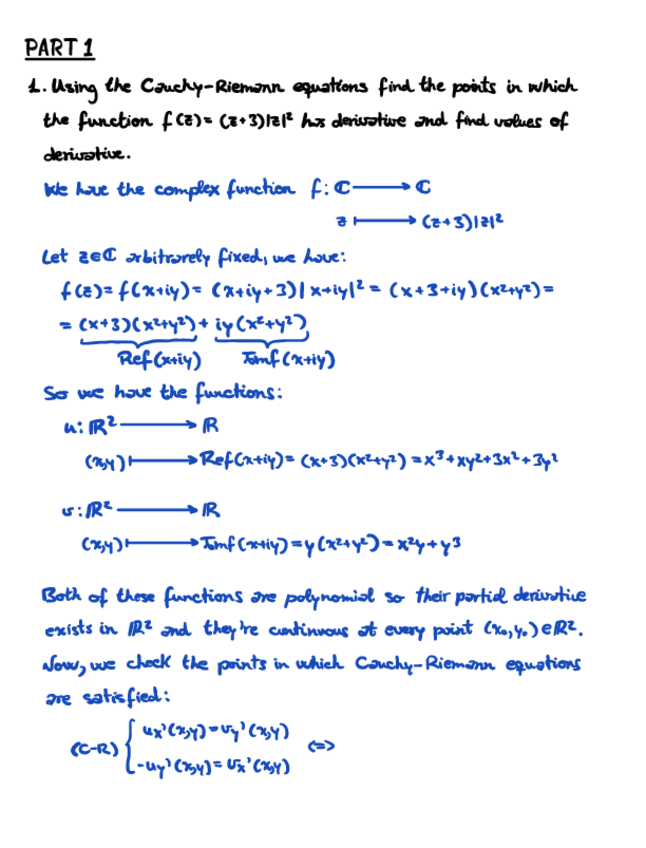 PART 1
1. Using the Cauchy-Riemann equations find the points in which
the function f(z)= (z+3)|z|² has derivative and find values of
derivative.
We have the complex function f: ℂ ⟶ ℂ
z ⟼ (z+3)|z|²
Let z∈ℂ arbitrarely fixed, we have:
f(z)= f(x+iy)= (x+iy+3)|x+iy|² = (x+3+iy)(x²+y²)=
= (x+3)(x²+y²)+ iy(x²+y²)
Ref(x+iy) Imf(x+iy)
So we have the functions:
u: ℝ² ⟶ ℝ
(x,y) ⟼ Ref(x+iy)= (x+3)(x²+y²) =x³+xy²+3x²+3y²
v: ℝ² ⟶ ℝ
(x,y) ⟼ Imf(x+iy)=y(x²+y²)=x²y+y³
Both of these functions are polynomial so their partial derivative
exists in ℝ² and they're continuous at every point (x₀,y₀)∈ℝ².
Now, we check the points in which Cauchy-Riemann equations
are satisfied:
(C-R) { ux'(x,y)=vy'(x,y) <=>
-uy'(x,y)= vx'(x,y)